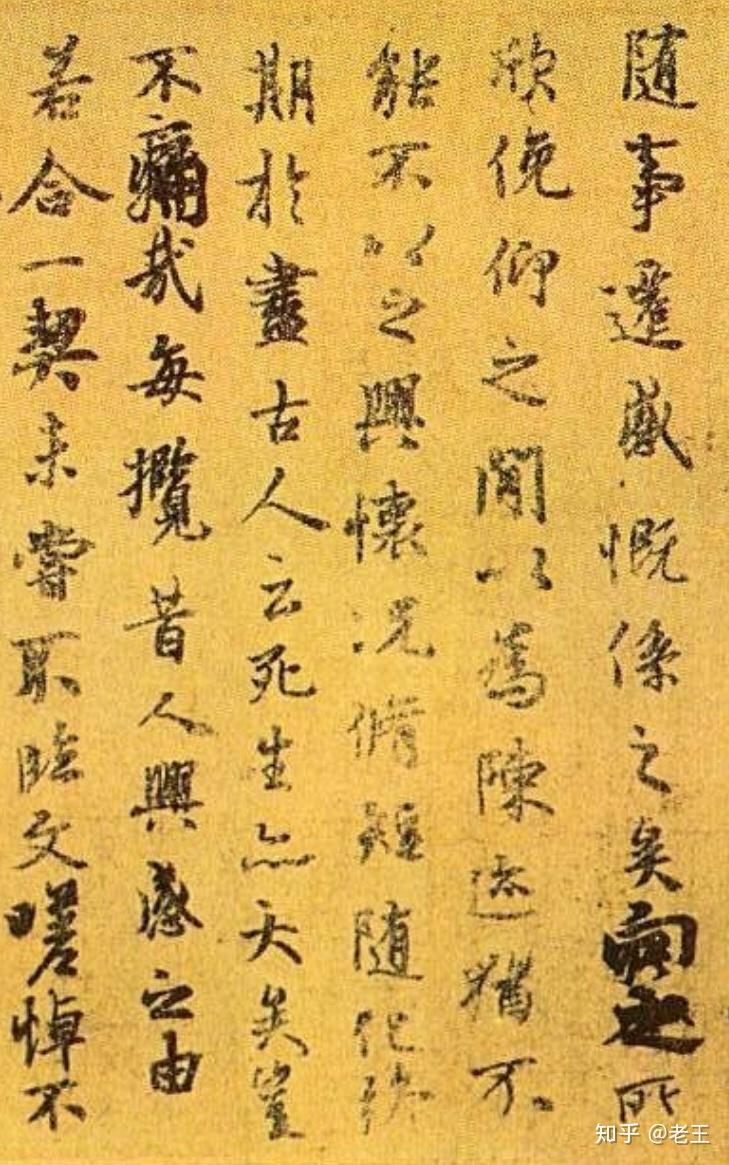 随事遷感慨係之矣向之所
欣俛仰之閒以為陳迹猶不
能不以之興懷況脩短随化終
期於盡古人云死生亦大矣豈
不痛哉每攬昔人興感之由
若合一契未嘗不臨文嗟悼不
知乎 @老王